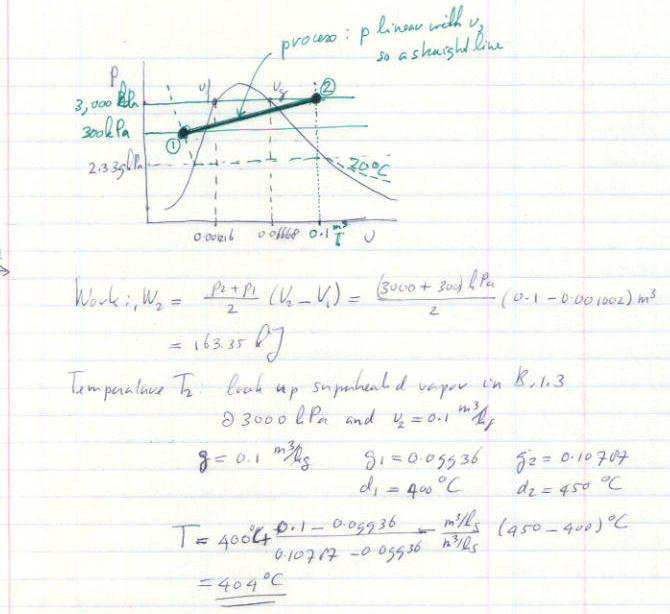 process : p linear with v,
so a straight line
P
3,000 kPa
vf
vg
②
300 kPa
①
2.339 kPa
20°C
0.001216
0.06668
0.1 m³/
v
Work: ₁W₂ = (P2 + P1)/2 (V2 - V1) = (3000 + 300) kPa/2 (0.1 - 0.001002) m³
= 163.35 kJ
Temperature T2: look up superheated vapor in B.1.3
@ 3000 kPa and v2 = 0.1 m³/kg
g = 0.1 m³/kg g1 = 0.09936 g2 = 0.10787
d1 = 400 °C d2 = 450 °C
T = 400°C + (0.1 - 0.09936)/(0.10787 - 0.09936) (m³/kg)/(m³/kg) (450 - 400) °C
= 404°C